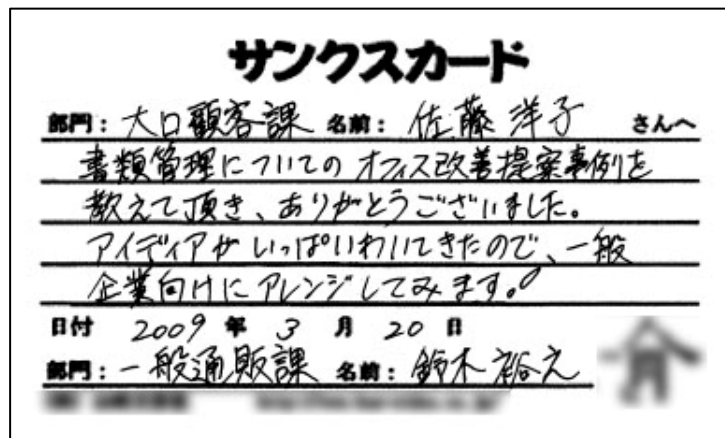 サンクスカード
部門：大口顧客課 名前：佐藤 洋子 さんへ
書類管理についてのオフィス改善提案事例を
教えて頂き、ありがとうございました。
アイディアがいっぱいわいてきたので、一般
企業向けにアレンジしてみます。
日付 2009 年 3 月 20 日
部門：一般通販課 名前：鈴木 裕之